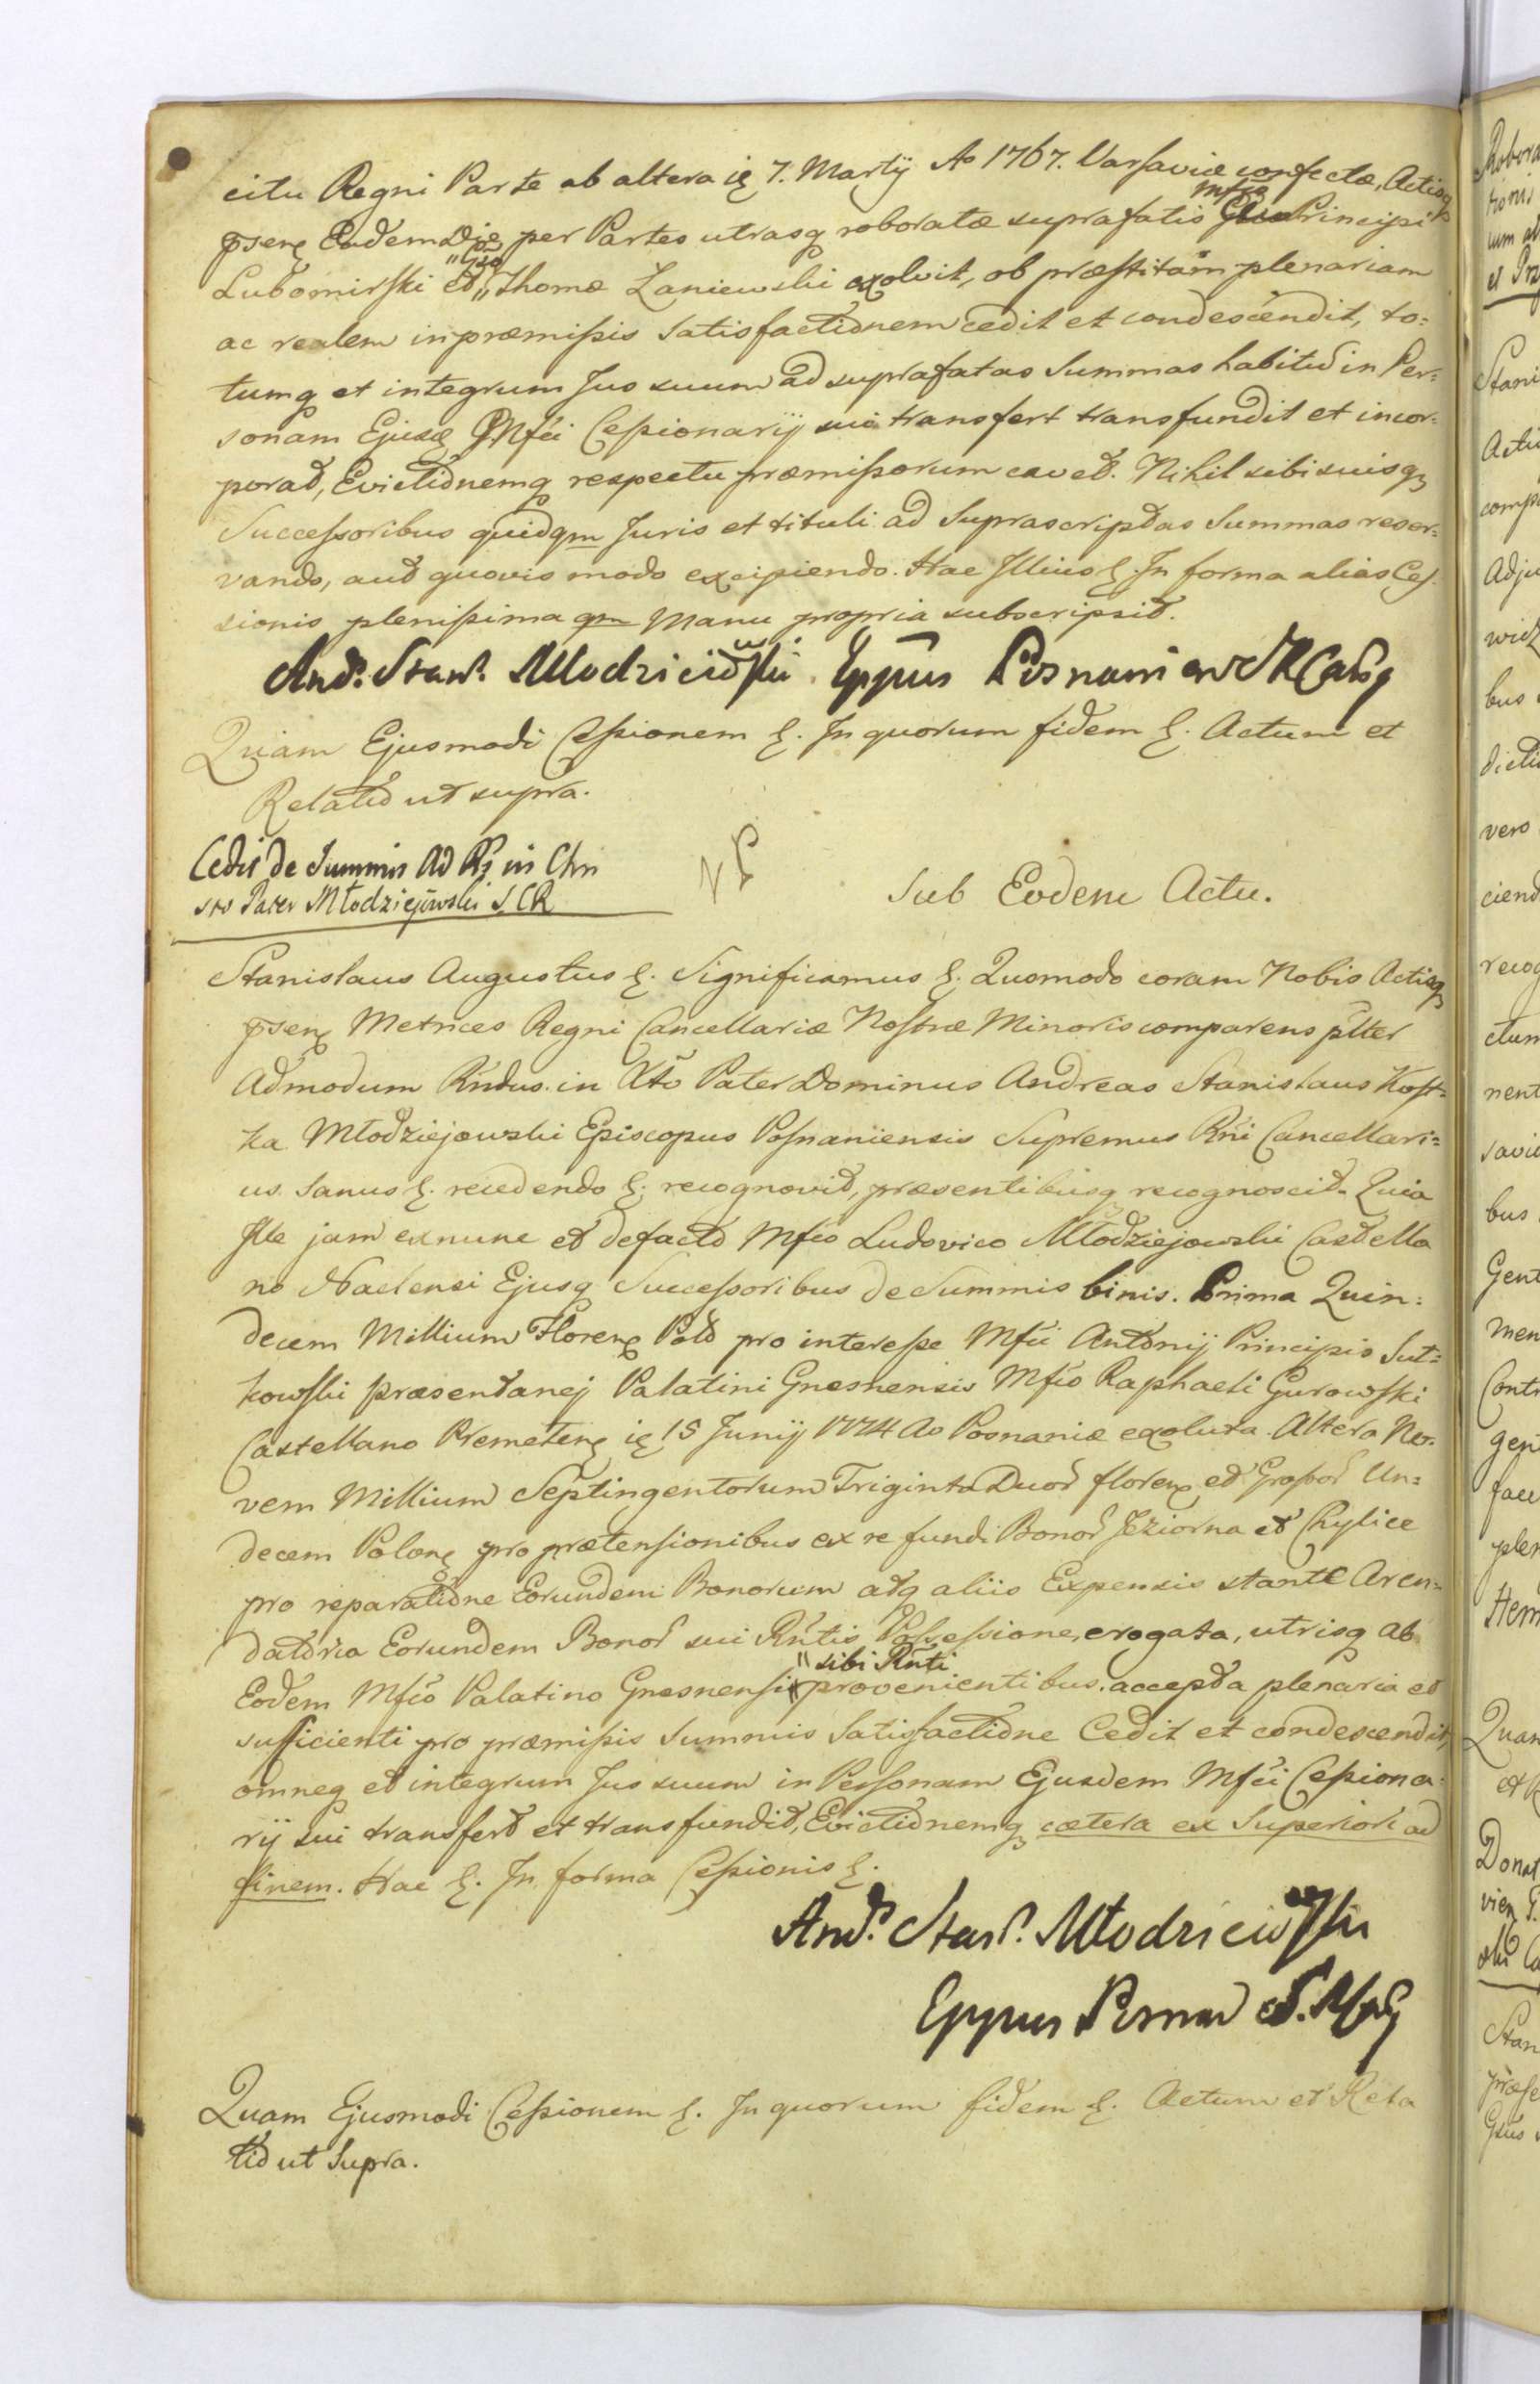 citu Regni Parte ab altera ię 7. Martÿ Ao 1767. Varsaviæ confectæ, Actisq
pñsenę Eodem Die per Partes utrasq roboratæ suprafatis Mfco Principi
Lubomirski et "Gso" Thomæ Łaniewski exolvit, ob præstitam plenariam
ac realem in præmissis Satisfactionem cedit et condescendit, to=
tumq et integrum Jus suum ad suprafatas Summas habitũ in Per=
sonam Ejusđ Mfci Cessionarÿ sui transfert transfundit et incor=
porat, Evictionemq respectu præmissorum cavet. Nihil sibi suisq
Successoribus quidqm Juris et tituli ad Suprascriptas Summas reser=
vando, aut quovis modo excipiendo. Hac Illius ę. In forma alias Ces
sionis plenissima qm Manu propria subscripsit.
Andr. Stanis. Młodzieiowski Eppus Posnaniens
Quam Ejusmodi Cessionem ę. In quorum fidem ę. Actum et
Relatio ut supra.
Cedit de Summis Ad Rs in Chri
sto Pater Młodziejowski SCR
Sub Eodem Actu.
Stanislaus Augustus ę. Significamus ę. Quomodo coram Nobis Actisq
pñsenę Metrices Regni Cancellariæ Nostræ Minoris comparens płter
Admodum Rńdus in Xto Pater Dominus Andreas Stanislaus Kost=
ka Młodziejowski Episcopus Posnaniensis Supremus Rńi Cancellari=
us. Sanus ę. recedendo ę. recognovit, præsentibusq recognoscit. Quia
Ille jam exnunc et defacto Mfco Ludovico Młodziejowski Castella
no Naclensi Ejusq Successoribus de Summis binis. Prima Quin=
decem Millium Florenę Pold pro interesse Mfci Antonij Principis Suł=
kowski præsentanej Palatini Gnesnensis Mfco Raphaeli Gurowski
Castellano Premetenę ię 15 Junij 1774 Ao Posnaniæ exoluta. Altera No=
vem Millium Septingentorum Triginta Duor florenę et Grossor Un=
decem Polonę pro prætensionibus ex re fundi Bonor Jeziorna et Chylice
pro reparatione Eorundem Bonorum atq aliis Expensis stante Aren=
datoria Eorundem Bonor sui Rńtis Possessione, erogata, utrisq ab
Eodem Mfco Palatino Gnesnensi "sibi Rńti provenientibus. accepta plenaria et
sufficienti pro præmissis Summis Satisfactione Cedit et condescendit,
omneq et integrum Jus suum in Personam Ejusdem Mfci Cessiona=
rij sui transfert et transfundit, Evictionemq cætera ex Superiori ad
finem. Hac ę. In forma Cessionis ę.
Andr. Stanis. Młodzieiowski
Eppus Posnan
Quam Ejusmodi Cessionem ę. In quorum fidem ę. Actum et Rela
tio ut Supra.